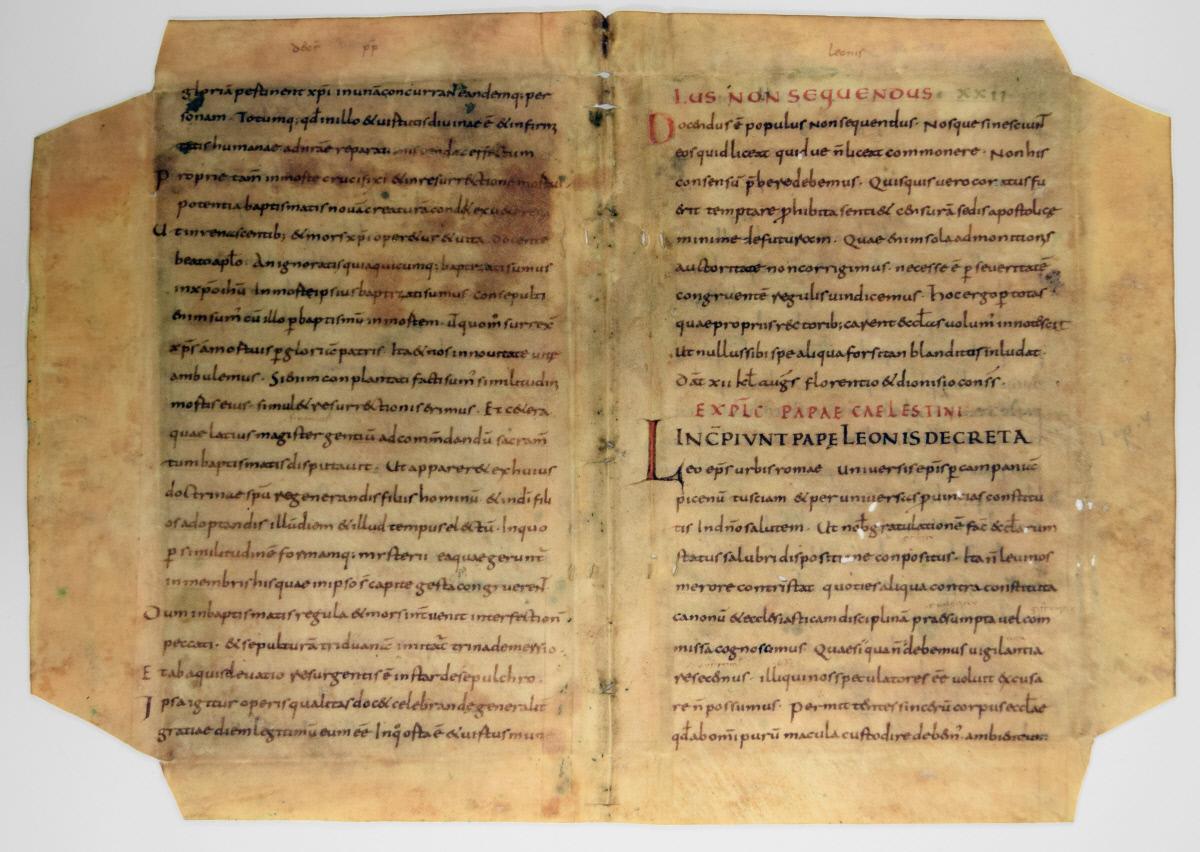 decr pp
gloriā pertinent xp̄i in unā concurrant eandemq; per
sonam. Totumq; qd̄ in illo & uirtutis diuinae ē & infirmi
tatis humanae ad nr̄ae reparationis tendat effectum
Proprie tam̄ in morte crucifixi & in resurrectione mortui
potentia baptismatis nouā creaturā condit ex uetere
Ut in renascentib; & mors xp̄i oper&ur & uita. Dicente
beato apl̄o. An ignoratis quia quicumq; baptizati sumus
in xp̄o ih̄u In morte ipsius baptizati sumus consepulti
enim sum̄ cū illo p̄ baptismū in mortem. Ut quom̄ surrex̄
xp̄s a mortuis p̄ gloriā patris. Ita & nos in nouitate uitę
ambulemus. Si enim conplantati facti sum̄ similitudini
mortis eius. simul & resurrectionis erimus. Et c&era
quae latius magister gentiū ad commendandū sacram̄
tum baptismatis disputauit. Ut apparer& ex huius
doctrinae sp̄u regenerandis filiis hominū & in dei fili
os adoptandis illū diem & illud tempus electū. In quo
p̄ similitudinē formamq; mysterii ea quae gerunt̄
in membris his quae in ipso s̄ capite gesta congruerent̄
Dum in baptismatis regula & mors int̄uenit interfection̄
peccati. & sepulturā triduanā imitat̄ trina demersio.
Et ab aquis eleuatio resurgentis ē instar de sepulchro.
Ipsa igitur operis qualitas doc& celebrandae generalit̄
gratiae diem legitimū eum ēē In qo orta ē & uirtus mune
Leonis
LUS NON SEQUENDUS. XXII
Docendus ē populus non sequendus. Nosque si nesciunt̄
eos quid liceat quidue n̄ liceat commonere. Non his
consensū p̄bere debemus. Quisquis uero conatus fu
erit temptare p̄hibita senti& censurā sedis apostolicę
minime defuturam. Quae enim sola admonitionis
auctoritate non corrigimus. necesse ē p̄ seueritatē
congruentē regulis uindicemus. Hoc ergo p̄ totas
quae propriis rectorib; carent ecclesias uolum̄ innotescat
Ut nullus sibi spe aliqua forsitan blanditus inludat.
Dat̄ xii kl̄ augs̄ florentio & dionisio cons̄s̄.
EXPLC PAPAE CAELESTINI
INCIPIVNT PAPĘ LEONIS DECRETA
Leo ep̄s urbis romae uniuersis ep̄is p̄ campaniā
picenū tusciam & per uniuersas p̄uincias constitu
tis In dn̄o salutem. Ut nob̄ gratulationē fac̄ eccl̄arum
status salubri dispositione conpositus. Ita n̄ leui nos
merore contristat quoties aliqua contra constituta
canonū & ecclesiasticam disciplinā praesumpta uel com
missa cognoscimus. Quae si quan̄ debemus uigilantia
resecenus. illi qui nos speculatores ēē uoluit excusa
re n̄ possumus. Permittentes sincerū corpus ecclae
qd̄ ab om̄i purū macula custodire debem̄. ambientium